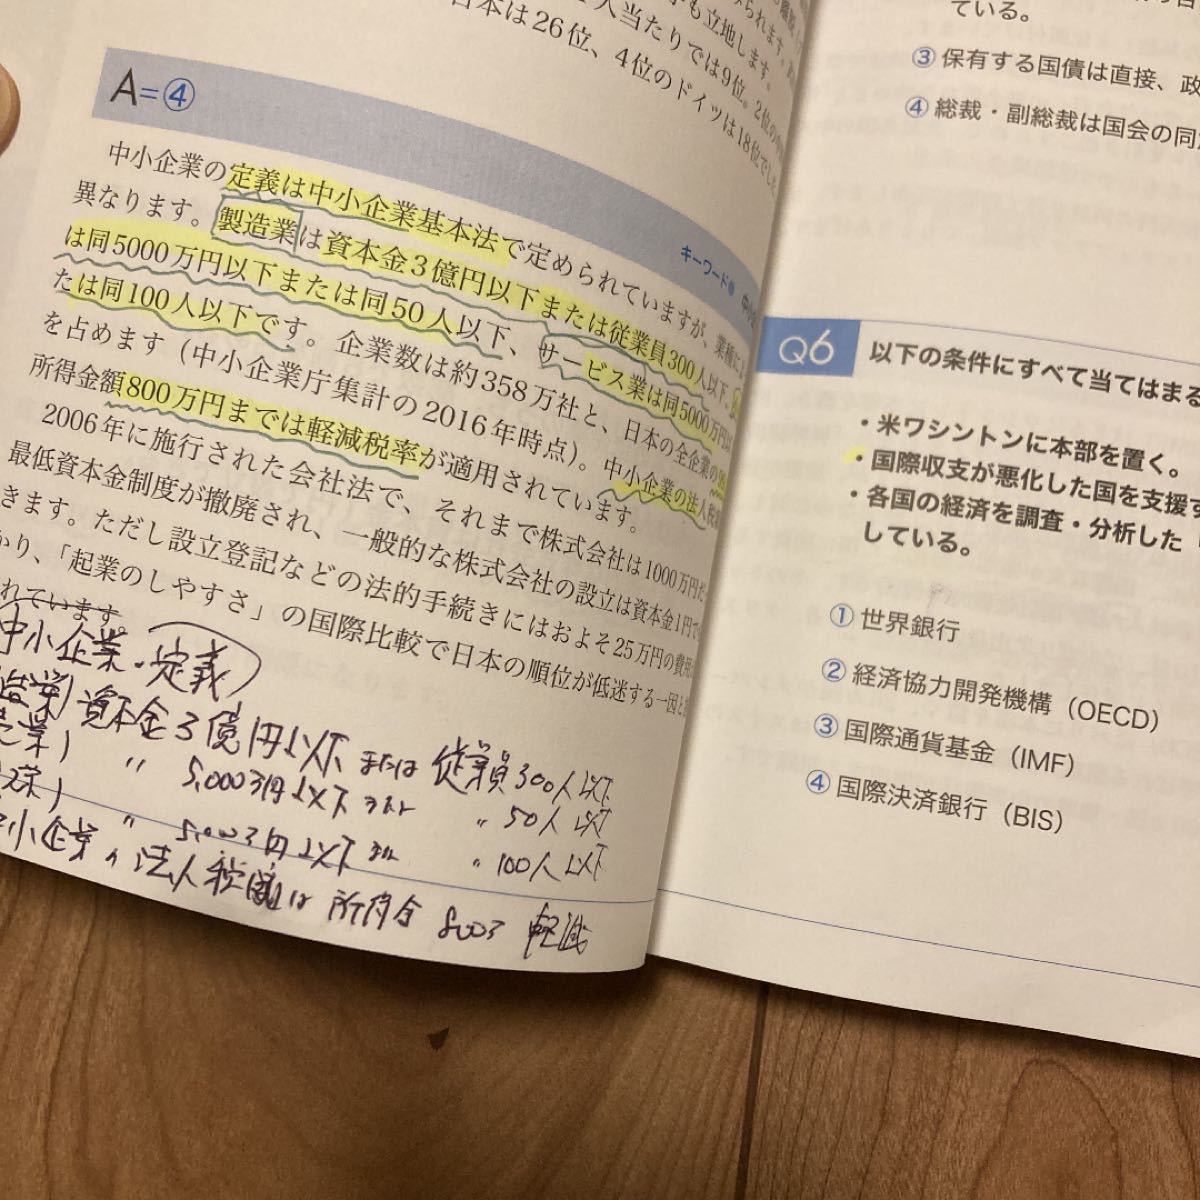 られます。
手も立地します。
1人当たりでは9位。2位の
日本は26位、4位のドイツは18位でした
A=④
キーワード
中小企業の定義は中小企業基本法で定められていますが、業種に
異なります。製造業は資本金3億円以下または従業員300人以下、
は同5000万円以下または同50人以下、サービス業は同5000万円
たは同100人以下です。企業数は約358万社と、日本の全企業の
を占めます(中小企業庁集計の2016年時点)。中小企業の法人税
所得金額800万円までは軽減税率が適用されています。
2006年に施行された会社法で、それまで株式会社は1000万円だ
最低資本金制度が撤廃され、一般的な株式会社の設立は資本金1円で
きます。ただし設立登記などの法的手続きにはおよそ25万円の費用
かり、「起業のしやすさ」の国際比較で日本の順位が低迷する一因と
れています。
中小企業・定義
造業) 資本金3億円以下 または 従業員300人以下
売業) 〃 5,000万円以下 または 〃 50人以下
〃 5,000万円以下 または 〃 100人以下
小企業の法人税 は 所得金 800万 軽減
ている。
③ 保有する国債は直接、政
④ 総裁・副総裁は国会の同
Q6 以下の条件にすべて当てはまる
・米ワシントンに本部を置く。
・国際収支が悪化した国を支援す
・各国の経済を調査・分析した「
している。
① 世界銀行
② 経済協力開発機構(OECD)
③ 国際通貨基金(IMF)
④ 国際決済銀行(BIS)